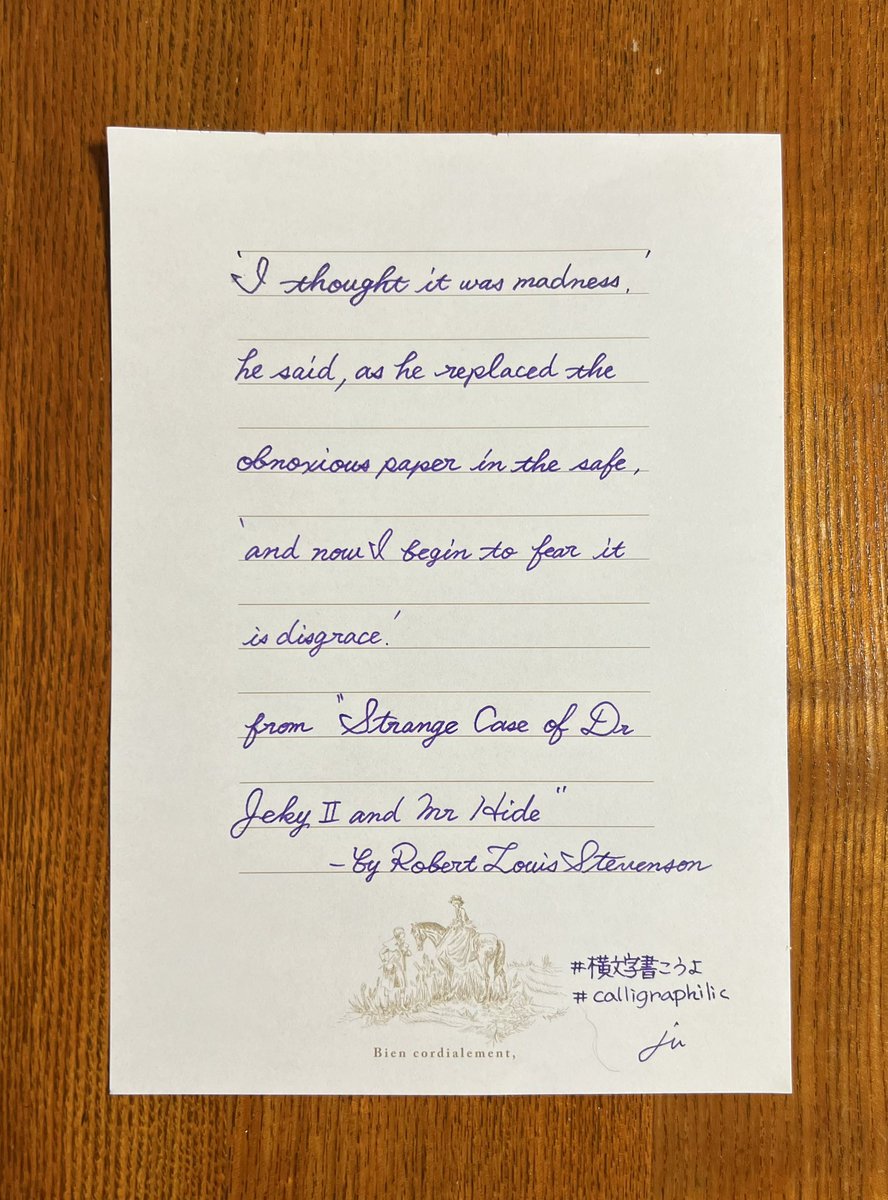 'I thought it was madness,'
he said, as he replaced the
obnoxious paper in the safe,
'and now I begin to fear it
is disgrace.'
from "Strange Case of Dr
Jeky II and Mr Hide"
-by Robert Louis Stevenson
#横文字書こうよ
#calligraphilic
ju
Bien cordialement,